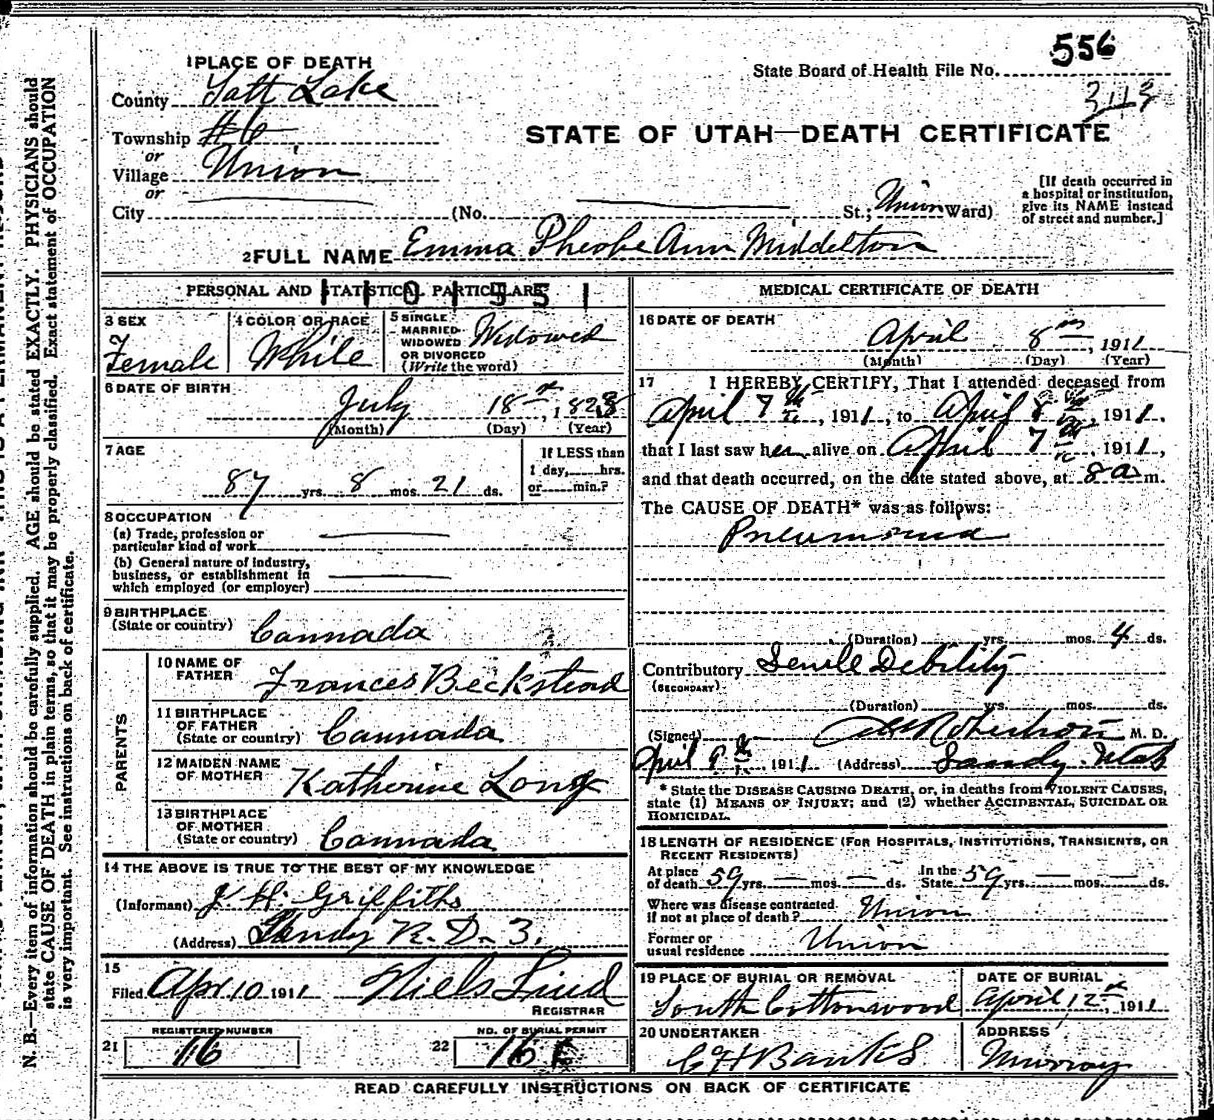 556
State Board of Health File No.
3113
1 PLACE OF DEATH
County Salt Lake
Township #6
or
Village Union
or
City (No. St.; Union Ward)
STATE OF UTAH—DEATH CERTIFICATE
[If death occurred in
a hospital or institution,
give its NAME instead
of street and number.]
2 FULL NAME Emma Pheobe Ann Middelton
PERSONAL AND STATISTICAL PARTICULARS
3 SEX Female
4 COLOR OR RACE White
5 SINGLE
MARRIED
WIDOWED
OR DIVORCED
(Write the word) Widowed
6 DATE OF BIRTH
July 18th, 1823
(Month) (Day) (Year)
7 AGE
87 yrs. 8 mos. 21 ds.
If LESS than
1 day, hrs.
or min.?
8 OCCUPATION
(a) Trade, profession or
particular kind of work
(b) General nature of industry,
business, or establishment in
which employed (or employer)
9 BIRTHPLACE
(State or country) Cannada
PARENTS
10 NAME OF
FATHER Frances Beckstead
11 BIRTHPLACE
OF FATHER
(State or country) Cannada
12 MAIDEN NAME
OF MOTHER Katherine Long
13 BIRTHPLACE
OF MOTHER
(State or country) Cannada
14 THE ABOVE IS TRUE TO THE BEST OF MY KNOWLEDGE
(Informant) J. H. Griffiths
(Address) Sandy R. D. 3.
15
Filed Apr 10 1911 Niels Lind
REGISTRAR
REGISTERED NUMBER
21 16
NO. OF BURIAL PERMIT
22 16
MEDICAL CERTIFICATE OF DEATH
16 DATE OF DEATH
April 8th, 1911
(Month) (Day) (Year)
17 I HEREBY CERTIFY, That I attended deceased from
April 7th, 1911, to April 8th, 1911,
that I last saw her alive on April 7th, 1911,
and that death occurred, on the date stated above, at 8 a m.
The CAUSE OF DEATH* was as follows:
Pneumonia
(Duration) yrs. mos. 4 ds.
Contributory Senile Debility
(SECONDARY)
(Duration) yrs. mos. ds.
(Signed) Robertson M. D.
April 9th, 1911 (Address) Sandy. Utah
* State the DISEASE CAUSING DEATH, or, in deaths from VIOLENT CAUSES,
state (1) MEANS OF INJURY; and (2) whether ACCIDENTAL, SUICIDAL OR
HOMICIDAL.
18 LENGTH OF RESIDENCE (FOR HOSPITALS, INSTITUTIONS, TRANSIENTS, OR
RECENT RESIDENTS)
At place
of death 59 yrs. — mos. — ds. In the
State 59 yrs. — mos. — ds.
Where was disease contracted
if not at place of death? Union
Former or
usual residence Union
19 PLACE OF BURIAL OR REMOVAL
South Cottonwood
DATE OF BURIAL
April 12th, 1911
20 UNDERTAKER
C H Banks
ADDRESS
Murray
READ CAREFULLY INSTRUCTIONS ON BACK OF CERTIFICATE
N. B.—Every item of information should be carefully supplied. AGE should be stated EXACTLY. PHYSICIANS should
state CAUSE OF DEATH in plain terms, so that it may be properly classified. Exact statement of OCCUPATION
is very important. See instructions on back of certificate.